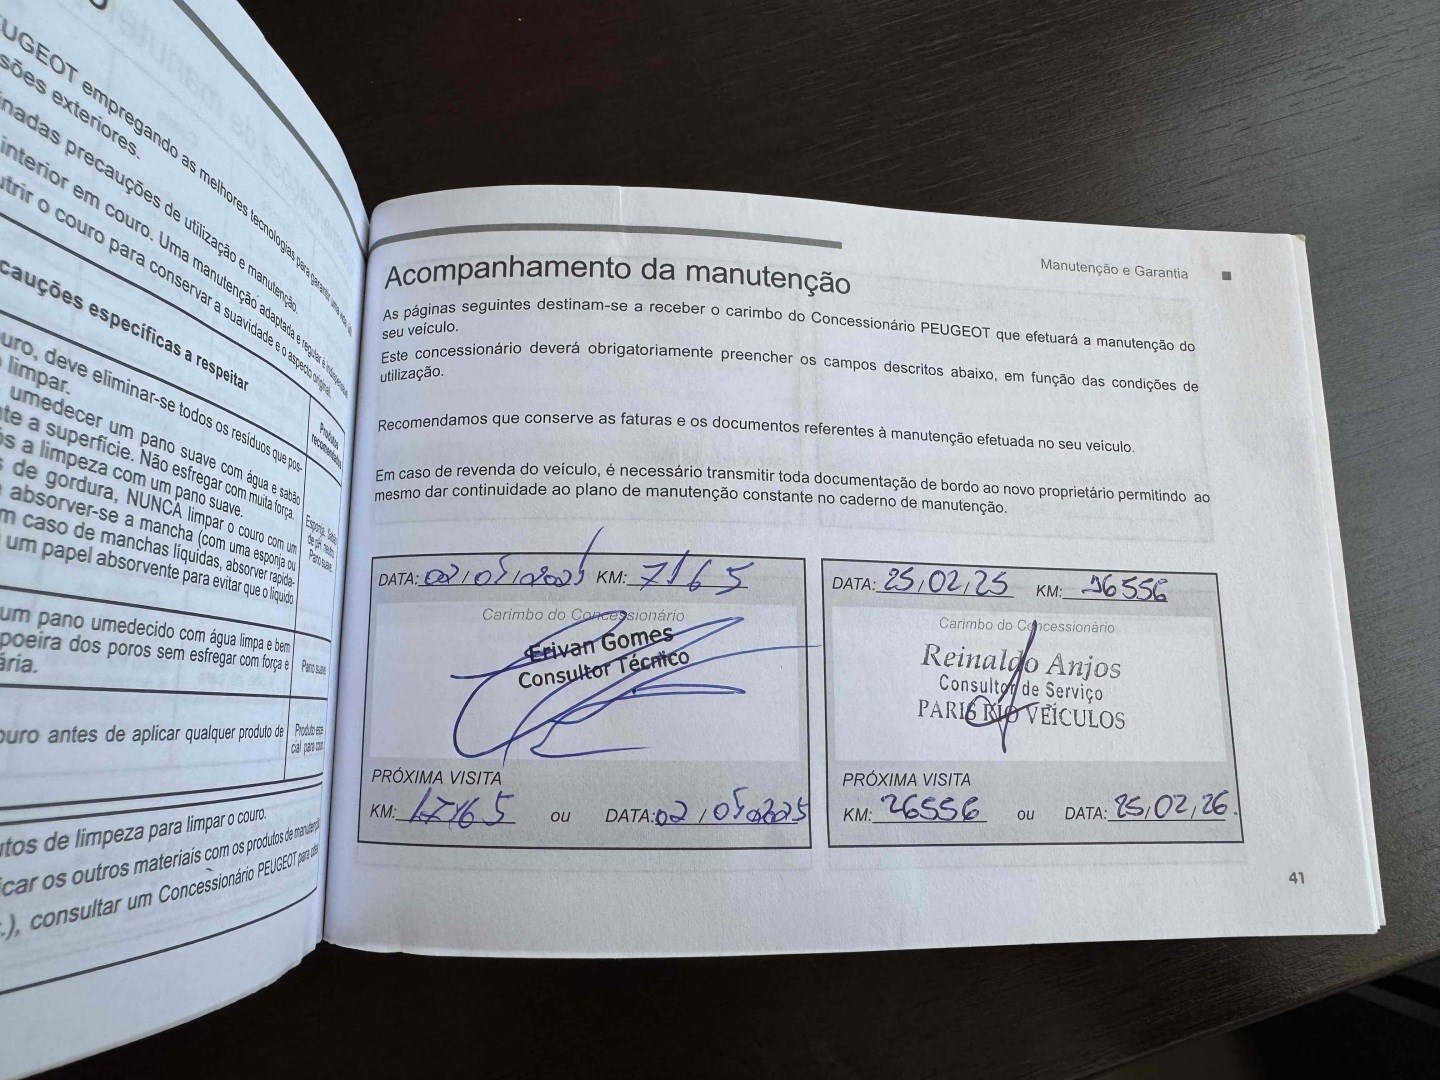 UGEOT empregando as melhores tecnologias para garantir uma
sões exteriores.
nadas precauções de utilização e manutenção.
interior em couro. Uma manutenção adaptada e regular é indispensável
utrir o couro para conservar a suavidade e o aspecto original.
cauções específicas a respeitar
Produtos recomendados
uro, deve eliminar-se todos os resíduos que pos-
limpar.
umedecer um pano suave com água e sabão
te a superfície. Não esfregar com muita força.
s a limpeza com um pano suave.
s de gordura, NUNCA limpar o couro com um
absorver-se a mancha (com uma esponja ou
m caso de manchas líquidas, absorver rapida-
um papel absorvente para evitar que o líquido
Esponja, Sabão
de pH neutro
Pano suave
um pano umedecido com água limpa e bem
poeira dos poros sem esfregar com força e
ária.
Pano suave
ouro antes de aplicar qualquer produto de
Produto espe-
cial para couro
utos de limpeza para limpar o couro.
icar os outros materiais com os produtos de manutenção
.), consultar um Concessionário PEUGEOT para
Manutenção e Garantia
Acompanhamento da manutenção
As páginas seguintes destinam-se a receber o carimbo do Concessionário PEUGEOT que efetuará a manutenção do
seu veículo.
Este concessionário deverá obrigatoriamente preencher os campos descritos abaixo, em função das condições de
utilização.
Recomendamos que conserve as faturas e os documentos referentes à manutenção efetuada no seu veículo.
Em caso de revenda do veículo, é necessário transmitir toda documentação de bordo ao novo proprietário permitindo ao
mesmo dar continuidade ao plano de manutenção constante no caderno de manutenção.
DATA: 02/05/202 KM: 7165
Carimbo do Concessionário
Erivan Gomes
Consultor Técnico
PRÓXIMA VISITA
KM: 17165 ou DATA: 02/05/2025
DATA: 25/02/25 KM: 16556
Carimbo do Concessionário
Reinaldo Anjos
Consultor de Serviço
PARIS RIO VEÍCULOS
PRÓXIMA VISITA
KM: 26556 ou DATA: 25/02/26.
41